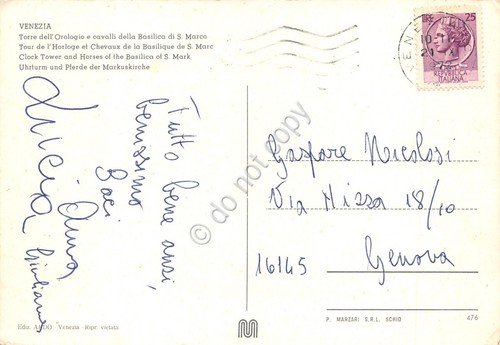 VENEZIA
Torre dell'Orologio e cavalli della Basilica di S. Marco
Tour de l'Horloge et Chevaux de la Basilique de S. Marc
Clock Tower and Horses of the Basilica of S. Mark
Uhrturm und Pferde der Markuskirche
LIRE 25
REPVBBLICA
ITALIANA
VENEZIA
Tutto bene anzi,
benissimo
Baci
Lucia
Anna
Giuliana
Gaspare Nicolosi
Via Nizza 18/10
16145 Genova
do not copy
Ediz. ARDO Venezia - Ripr. vietata
P. MARZARI S.R.L. SCHIO
476